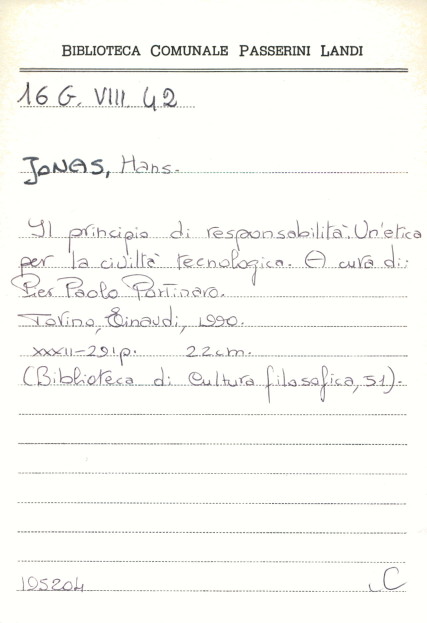 BIBLIOTECA COMUNALE PASSERINI LANDI
16 G. VIII. 42
JONAS, Hans.
Il principio di responsabilità. Un'etica
per la civiltà tecnologica. A cura di:
Pier Paolo Portinaro.
Torino, Einaudi, 1990.
XXXII-291p. 22cm.
(Biblioteca di Cultura filosofica, 51).
195204 C